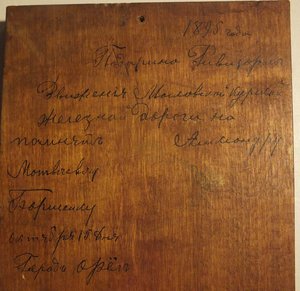 1898 года
Подарино Ривизоромъ
Движенья Московской Курской
железной дороги на
память Александру
Матвеевеву
Борискину
октября 18 дня
Городъ орёлъ